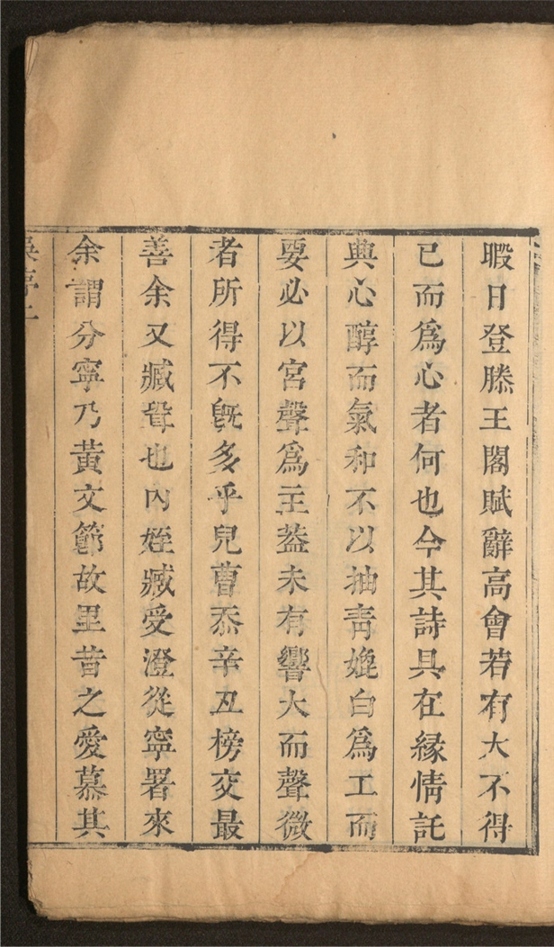 暇日登滕王閣賦辭高會若有大不得
已而爲心者何也今其詩具在緣情託
典心醇而氣和不以抽青媲白爲工而
要必以宮聲爲主葢未有響大而聲微
者所得不旣多乎兒曹忝辛丑榜交最
善余又臧聟也內姪臧受澄從寧署來
余謂分寧乃黃文節故里昔之愛慕其